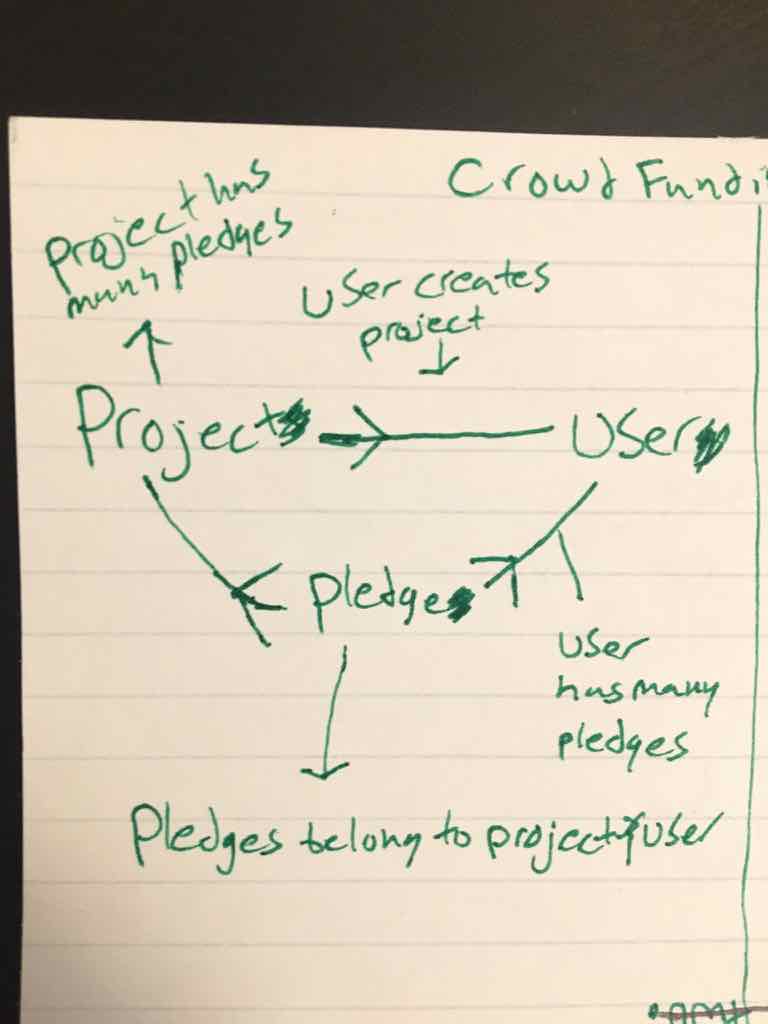 Crowd Fundi
Project has
many pledges
User creates
project
Project
User
Pledge
User
has many
pledges
Pledges belong to project & user